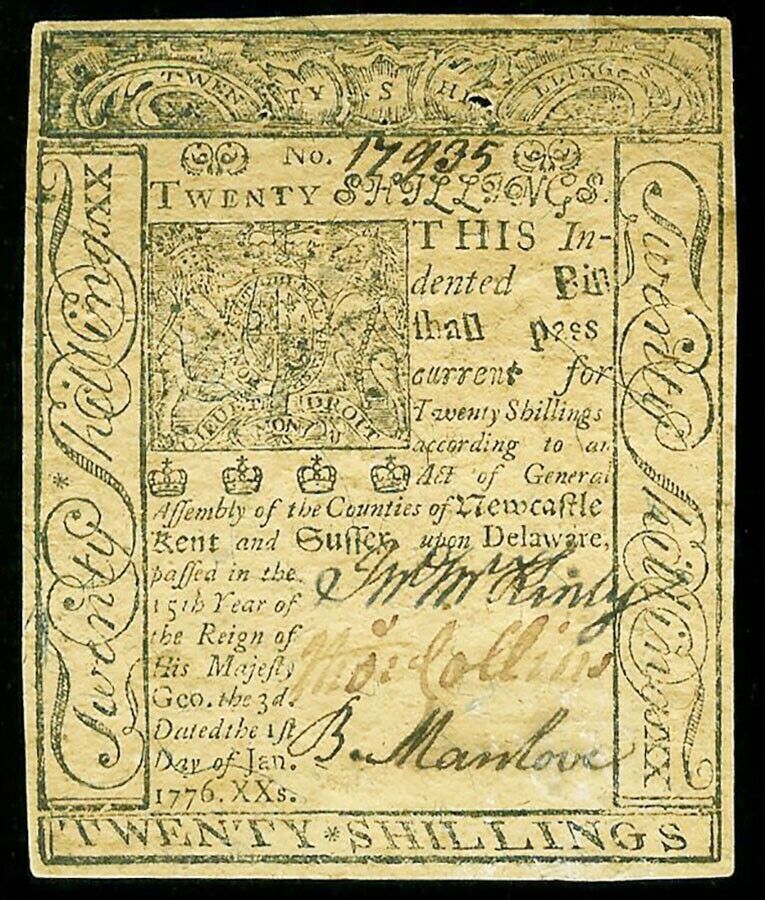 TWENTY SHILLINGS
No. 17935
TWENTY SHILLINGS.
THIS In-
dented Bill
ſhall paſs
current for
Twenty Shillings
according to an
Act of General
DIEU ET MON DROIT
Aſſembly of the Counties of Newcaſtle
Kent and Suſſex upon Delaware,
paſſed in the
15th Year of
the Reign of
His Majeſty
Geo. the 3d.
Dated the 1ſt
Day of Jan.
1776. XXs.
Jno Mc Kinly
Thos Collins
B. Manlove
Twenty * Shillings XX
Twenty Shillings XX
TWENTY * SHILLINGS